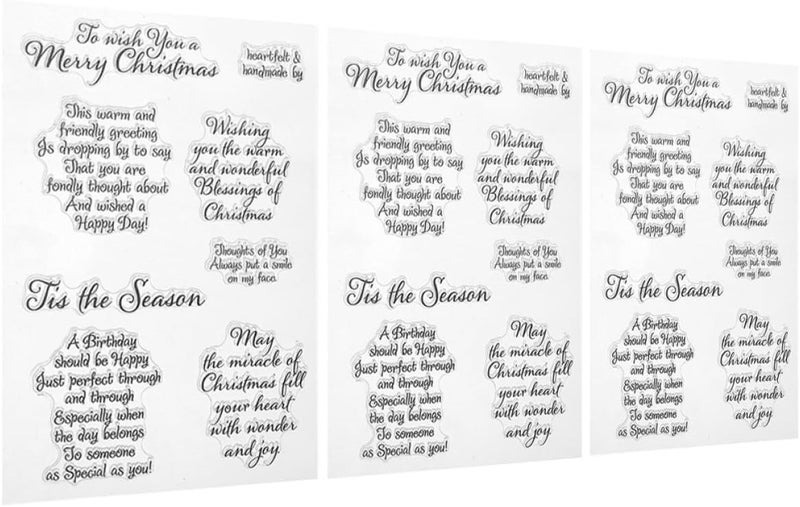 To wish You a
Merry Christmas
heartfelt &
handmade by
This warm and
friendly greeting
Is dropping by to say
That you are
fondly thought about
And wished a
Happy Day!
Wishing
you the warm
and wonderful
Blessings of
Christmas
Thoughts of You
Always put a smile
on my face.
Tis the Season
A Birthday
should be Happy
Just perfect through
and through
Especially when
the day belongs
To someone
as Special as you!
May
the miracle of
Christmas fill
your heart
with wonder
and joy.
To wish You a
Merry Christmas
heartfelt &
handmade by
This warm and
friendly greeting
Is dropping by to say
That you are
fondly thought about
And wished a
Happy Day!
Wishing
you the warm
and wonderful
Blessings of
Christmas
Thoughts of You
Always put a smile
on my face.
Tis the Season
A Birthday
should be Happy
Just perfect through
and through
Especially when
the day belongs
To someone
as Special as you!
May
the miracle of
Christmas fill
your heart
with wonder
and joy.
To wish You a
Merry Christmas
heartfelt &
handmade by
This warm and
friendly greeting
Is dropping by to say
That you are
fondly thought about
And wished a
Happy Day!
Wishing
you the warm
and wonderful
Blessings of
Christmas
Thoughts of You
Always put a smile
on my face.
Tis the Season
A Birthday
should be Happy
Just perfect through
and through
Especially when
the day belongs
To someone
as Special as you!
May
the miracle of
Christmas fill
your heart
with wonder
and joy.